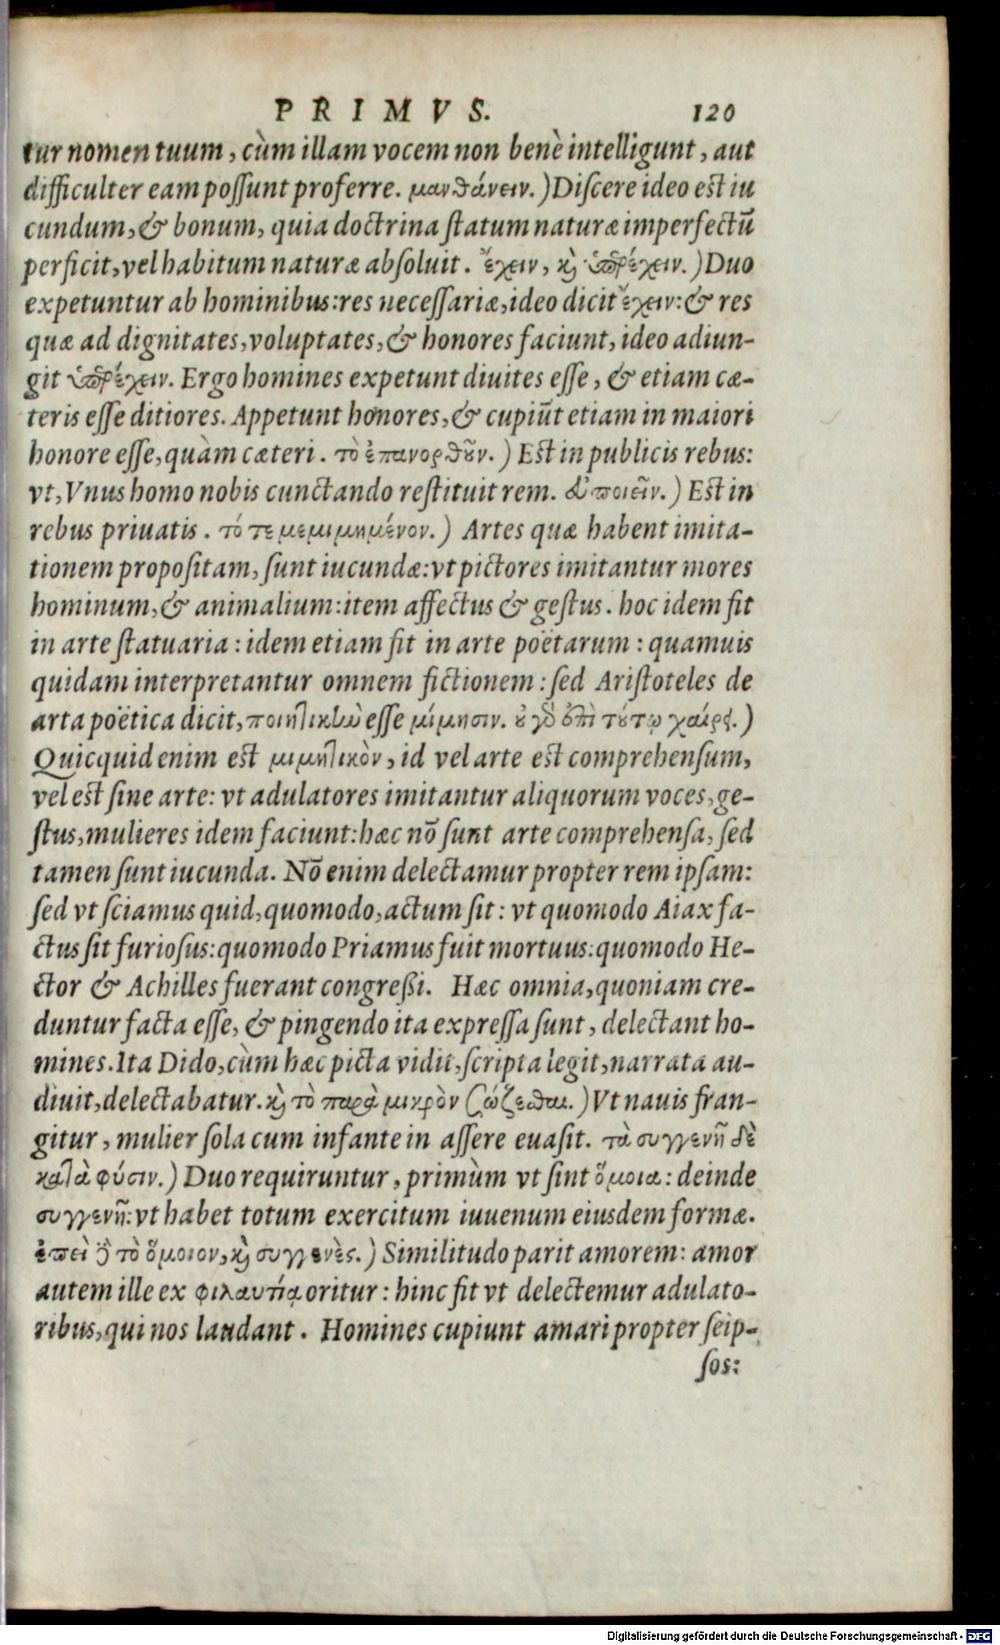 PRIMVS. 120
tur nomen tuum, cùm illam vocem non benè intelligunt, aut
difficulter eam possunt proferre. μανθάνειν.) Discere ideo est iu
cundum, & bonum, quia doctrina statum naturæ imperfectū
perficit, vel habitum naturæ absoluit. ἔχειν, κỳ ὑπερέχειν.) Duo
expetuntur ab hominibus: res necessariæ, ideo dicit ἔχειν: & res
quæ ad dignitates, voluptates, & honores faciunt, ideo adiun-
git ὑπερέχειν. Ergo homines expetunt diuites esse, & etiam cæ-
teris esse ditiores. Appetunt honores, & cupiūt etiam in maiori
honore esse, quàm cæteri. τὸ ἐπανορθοῦν.) Est in publicis rebus:
vt, Vnus homo nobis cunctando restituit rem. εὖ ποιεῖν.) Est in
rebus priuatis. τό τε μεμιμημένον.) Artes quæ habent imita-
tionem propositam, sunt iucundæ: vt pictores imitantur mores
hominum, & animalium: item affectus & gestus. hoc idem fit
in arte statuaria: idem etiam fit in arte poëtarum: quamuis
quidam interpretantur omnem fictionem: sed Aristoteles de
arta poëtica dicit, ποιητικὴν esse μίμησιν. οὐ γὸ ἐπὶ τούτῳ χαίρει.)
Quicquid enim est μιμητικὸν, id vel arte est comprehensum,
vel est sine arte: vt adulatores imitantur aliquorum voces, ge-
stus, mulieres idem faciunt: hæc nō sunt arte comprehensa, sed
tamen sunt iucunda. Nō enim delectamur propter rem ipsam:
sed vt sciamus quid, quomodo, actum sit: vt quomodo Aiax fa-
ctus sit furiosus: quomodo Priamus fuit mortuus: quomodo He-
ctor & Achilles fuerant congreßi. Hæc omnia, quoniam cre-
duntur facta esse, & pingendo ita expressa sunt, delectant ho-
mines. Ita Dido, cùm hæc picta vidit, scripta legit, narrata au-
diuit, delectabatur. κỳ τὸ παρὰ μικρὸν σώζεσθαι.) Vt nauis fran-
gitur, mulier sola cum infante in assere euasit. τὰ συγγενῆ δὲ
κατὰ φύσιν.) Duo requiruntur, primùm vt sint ὅμοια: deinde
συγγενῆ: vt habet totum exercitum iuuenum eiusdem formæ.
ἐπεὶ δὲ τὸ ὅμοιον, κỳ συγγενὲς.) Similitudo parit amorem: amor
autem ille ex φιλαυτίᾳ oritur: hinc fit vt delectemur adulato-
ribus, qui nos laudant. Homines cupiunt amari propter seip-
sos:
Digitalisierung gefördert durch die Deutsche Forschungsgemeinschaft - DFG